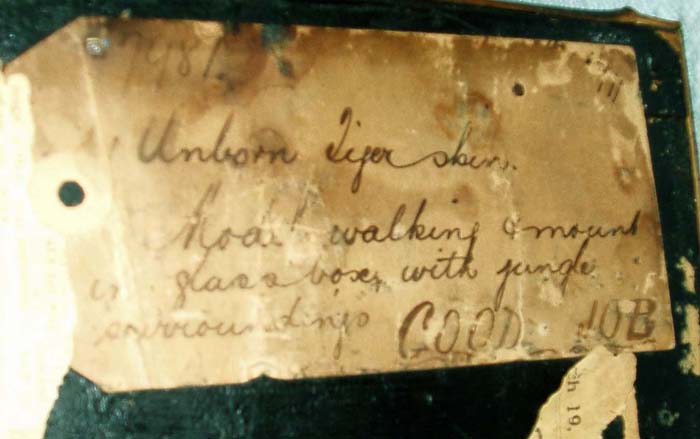 7981
Unborn Tiger skin.
Model walking & mount
in glass box, with jungle
surroundings GOOD JOB
h 19,